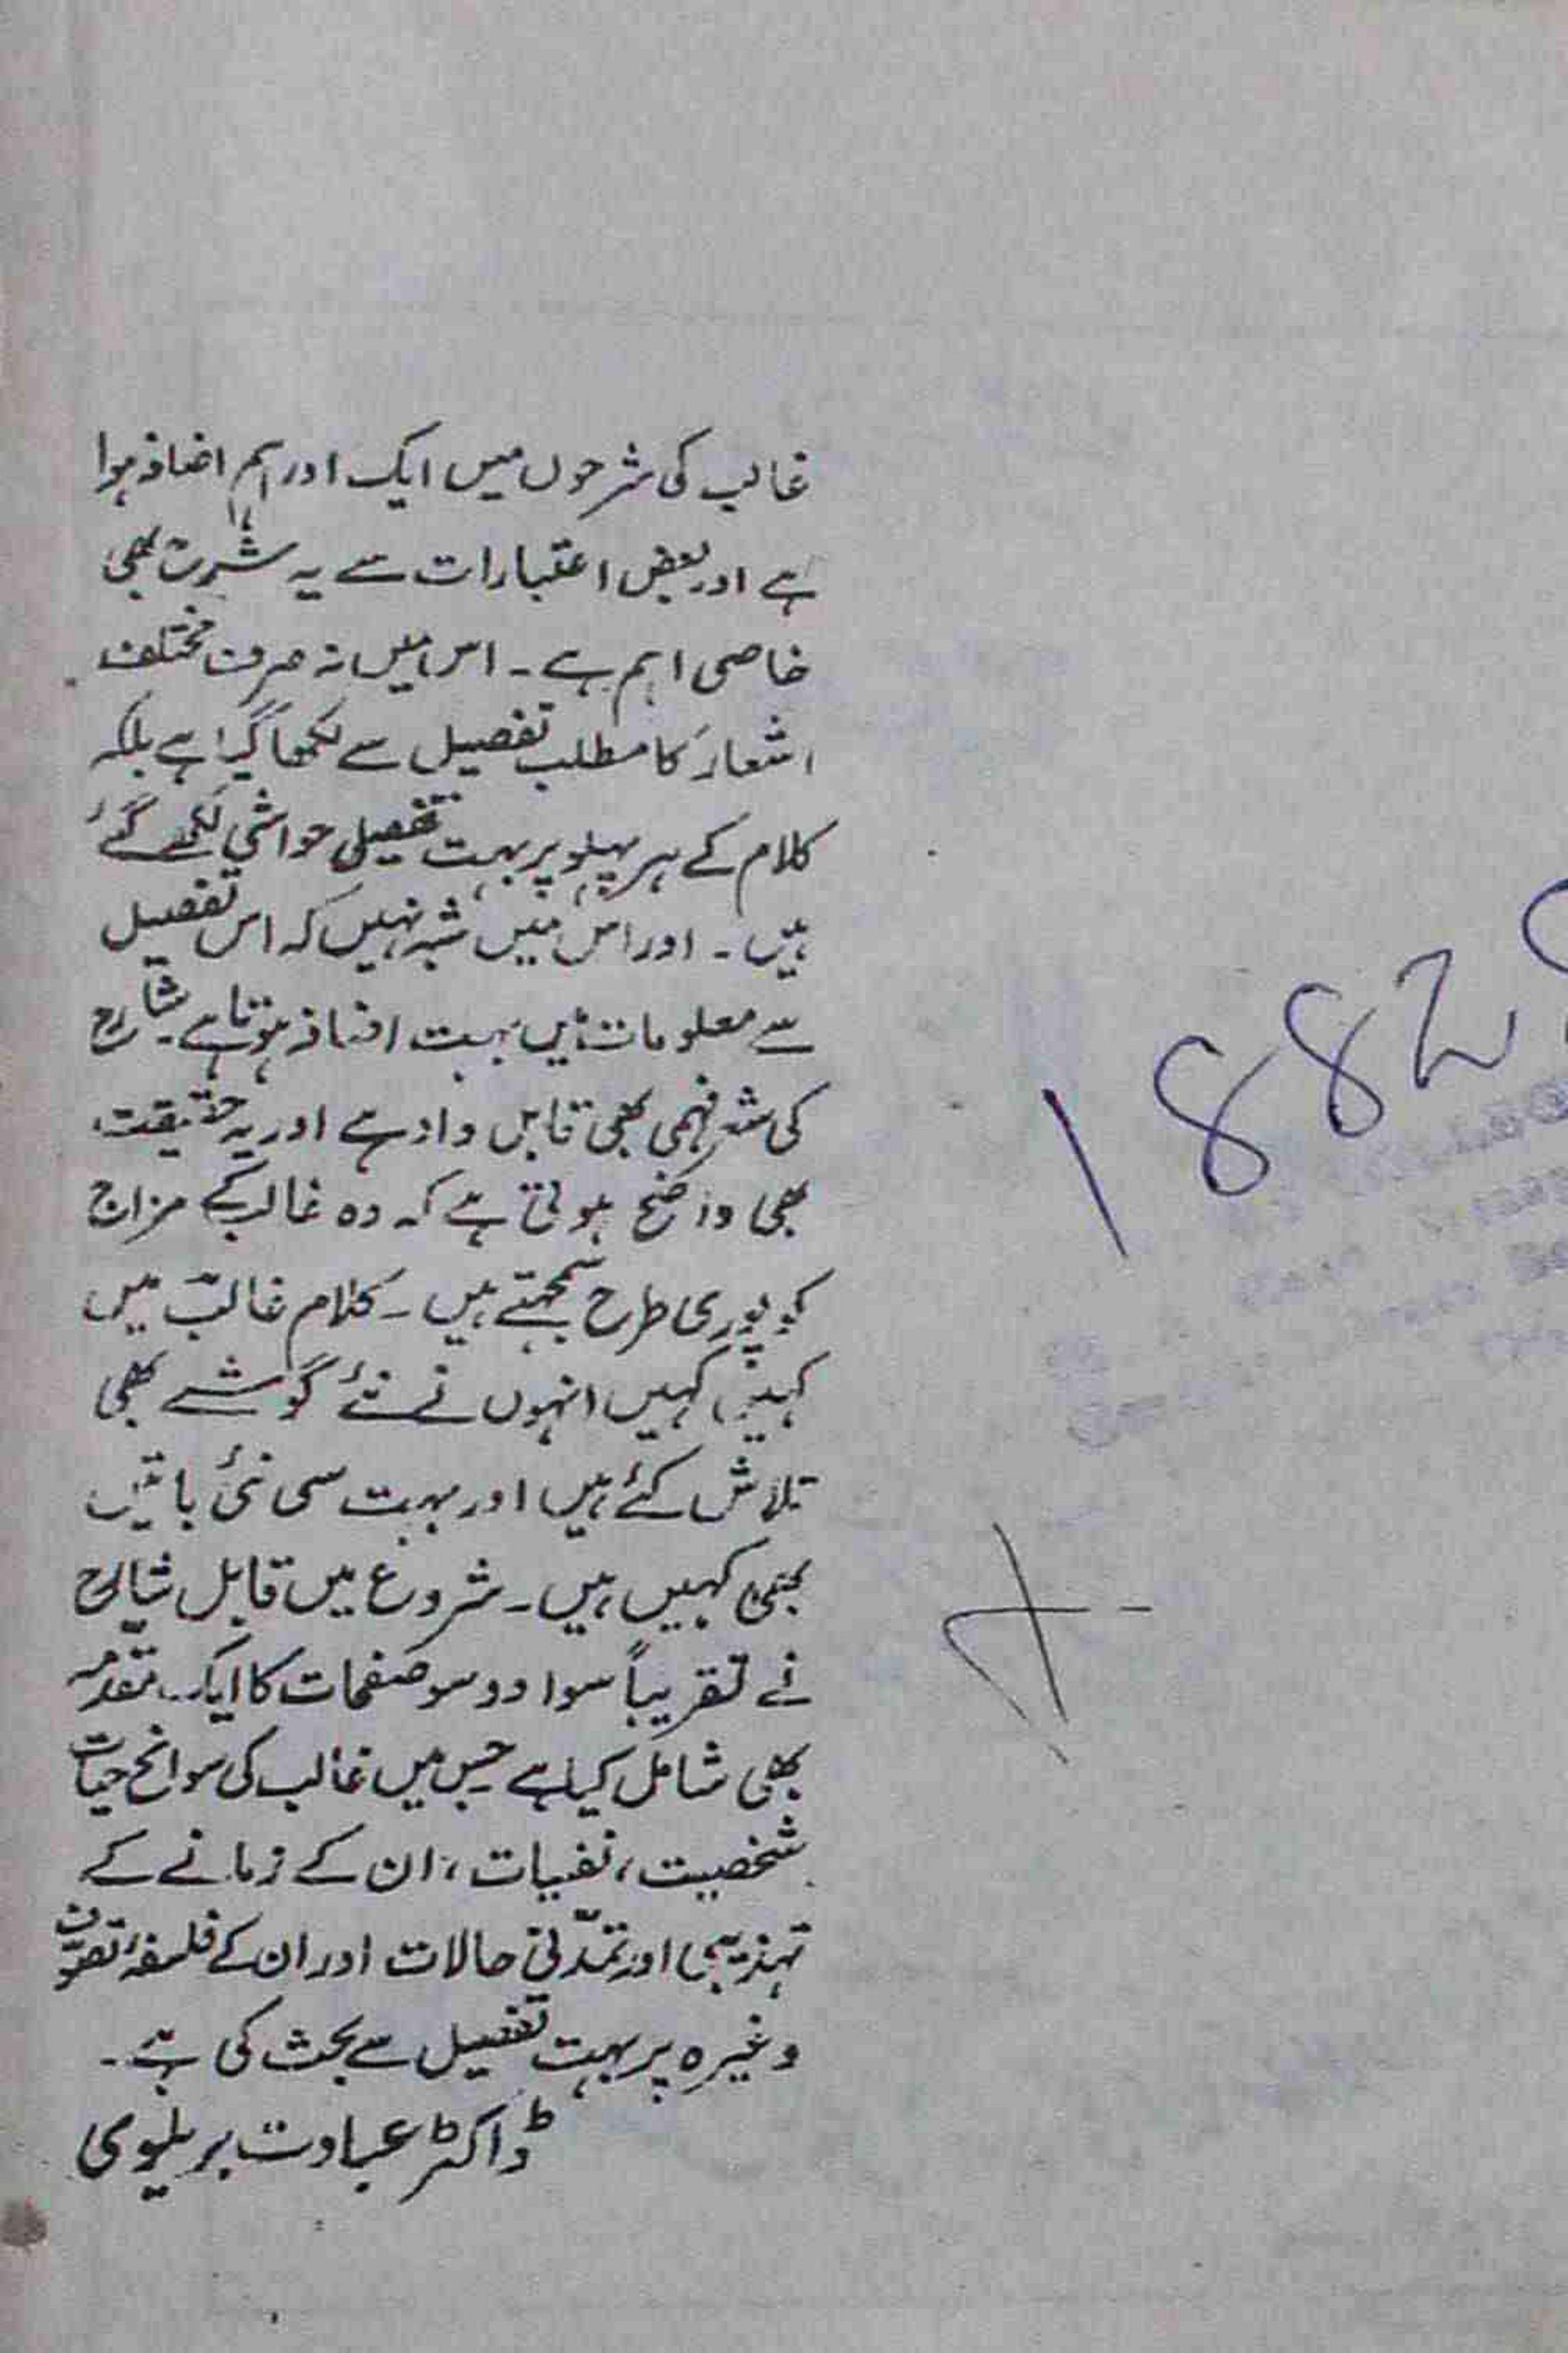 غالب کی شرحوں میں ایک اور اہم اضافہ ہوا
ہے اور بعض اعتبارات سے یہ شرح بھی
خاصی اہم ہے۔ اس میں نہ صرف مختلف
اشعار کا مطلب تفصیل سے لکھا گیا ہے بلکہ
کلام کے ہر پہلو پر بہت تفصیلی حواشی لکھے گئے
ہیں۔ اور اس میں شبہ نہیں کہ اس تفصیل
سے معلومات میں بہت اضافہ ہوتا ہے۔ شارح
کی شعر فہمی بھی قابل داد ہے اور یہ حقیقت
بھی واضح ہوتی ہے کہ وہ غالب کے مزاج
کو پوری طرح سمجھتے ہیں۔ کلام غالب میں
کہیں کہیں انہوں نے نئے گوشے بھی
تلاش کئے ہیں اور بہت سی نئی باتیں
بھی کہیں ہیں۔ شروع میں قابل شارح
نے تقریباً سوا دو سو صفحات کا ایک مقدمہ
بھی شامل کیا ہے جس میں غالب کی سوانح حیات
شخصیت، نفسیات، ان کے زمانے کے
تہذیبی اور تمدّنی حالات اور ان کے فلسفۂ تصوّف
وغیرہ پر بہت تفصیل سے بحث کی ہے۔
ڈاکٹر عبادت بریلوی
1882